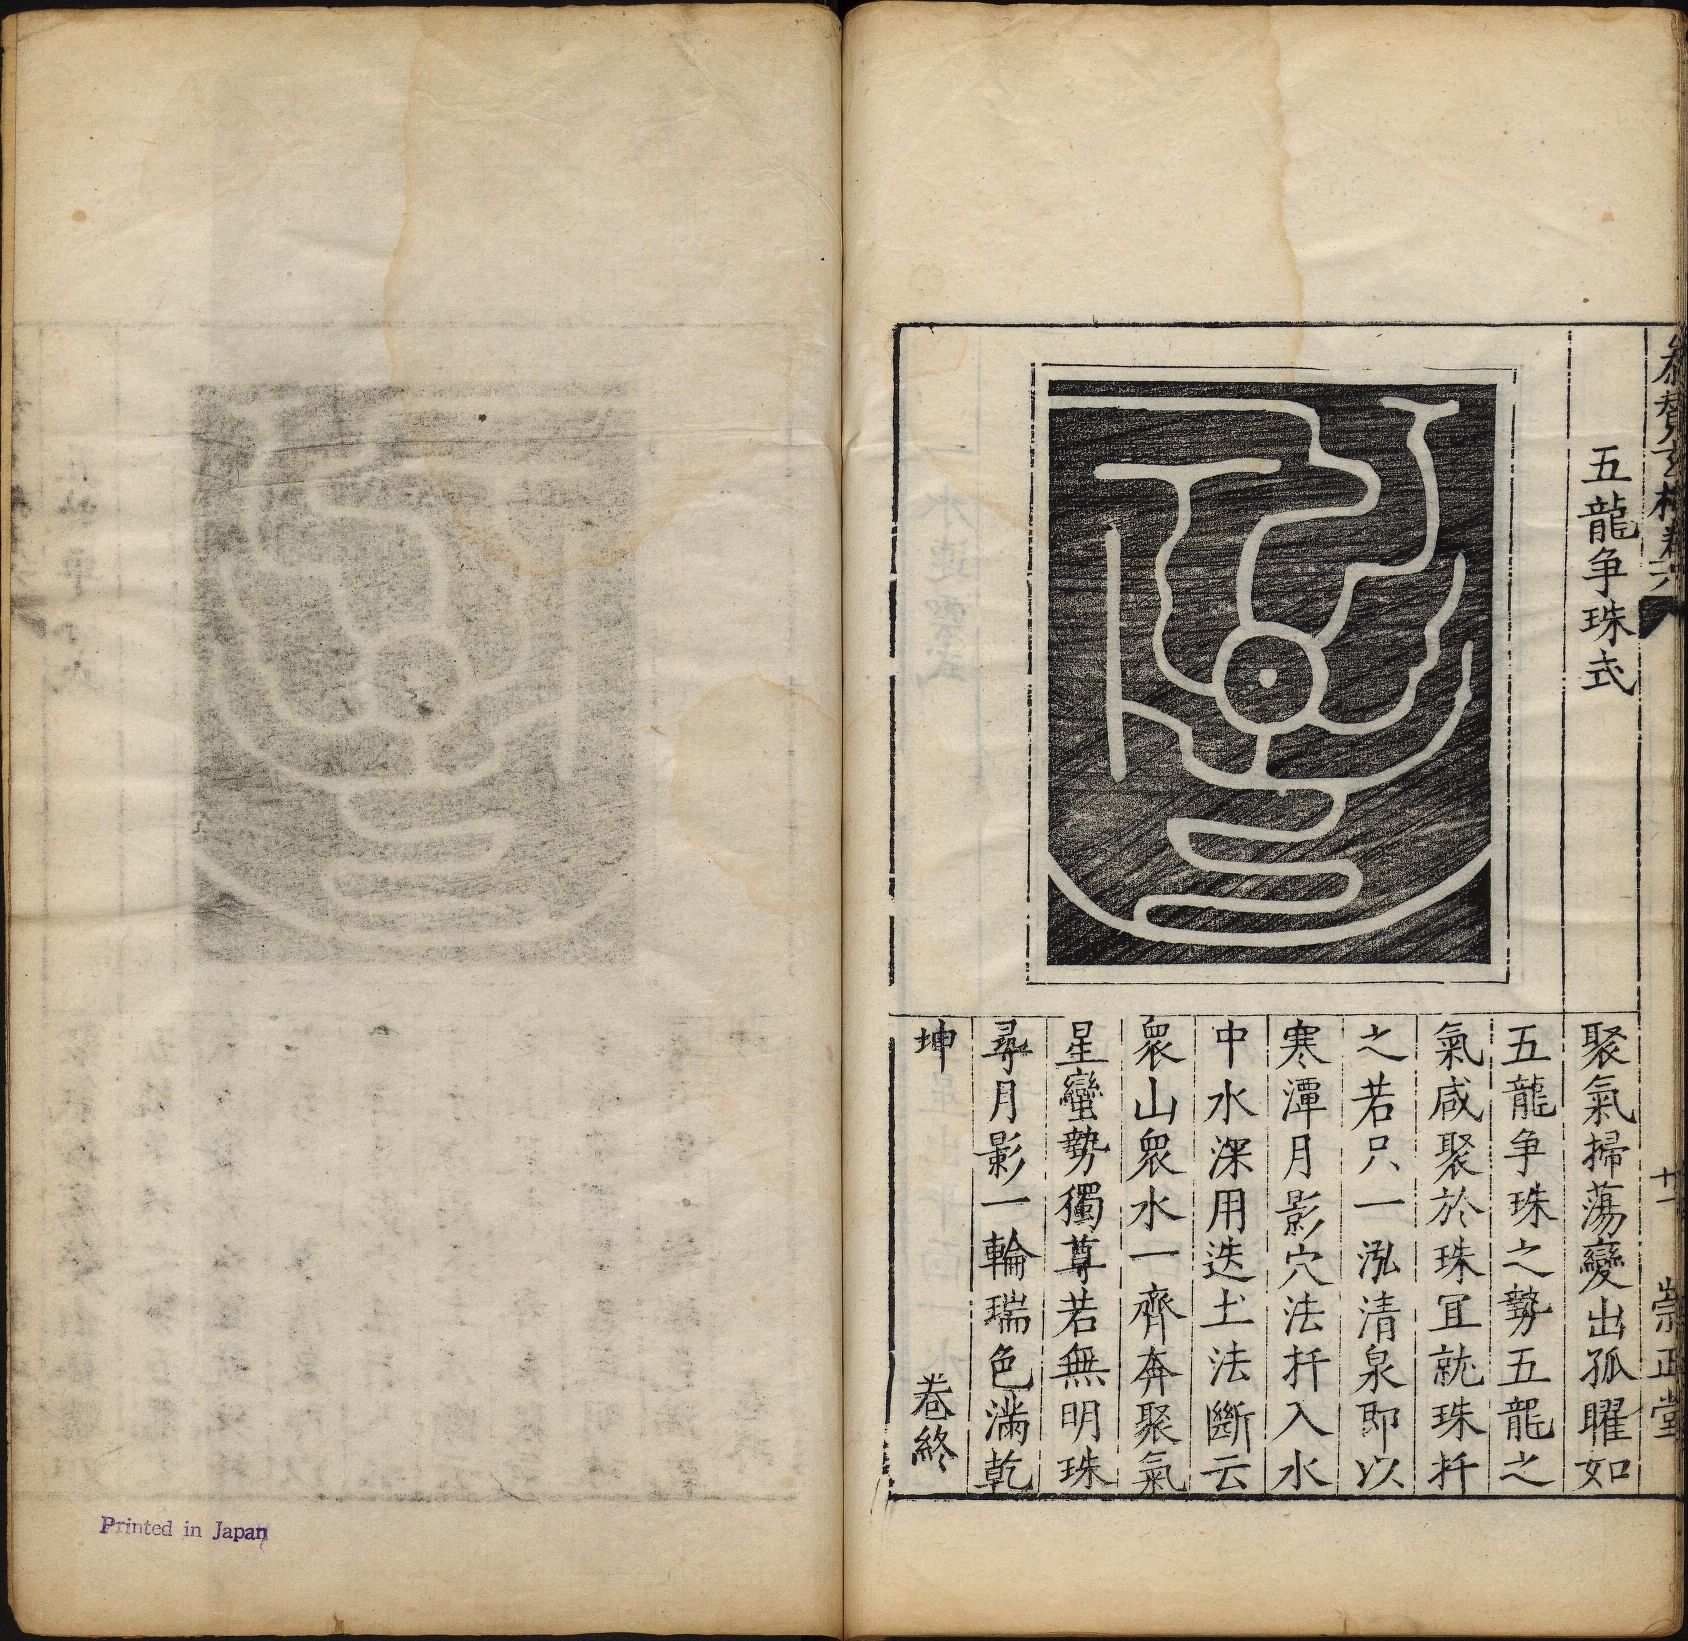 參贊玄機卷六
廿一
崇正堂
五龍争珠式
聚氣掃蕩變出孤曜如
五龍争珠之勢五龍之
氣咸聚於珠冝就珠扦
之若只一泓清泉即以
寒潭月影穴法扦入水
中水深用迭圡法斷云
衆山衆水一齊奔聚氣
星蠻勢獨尊若無明珠
尋月影一輪瑞色滿乾
坤
卷終
Printed in Japan